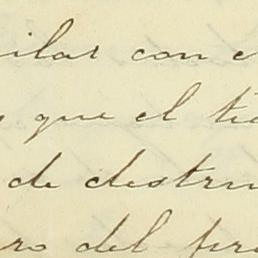 ilar con e
que el ti
de destru
ro del pre